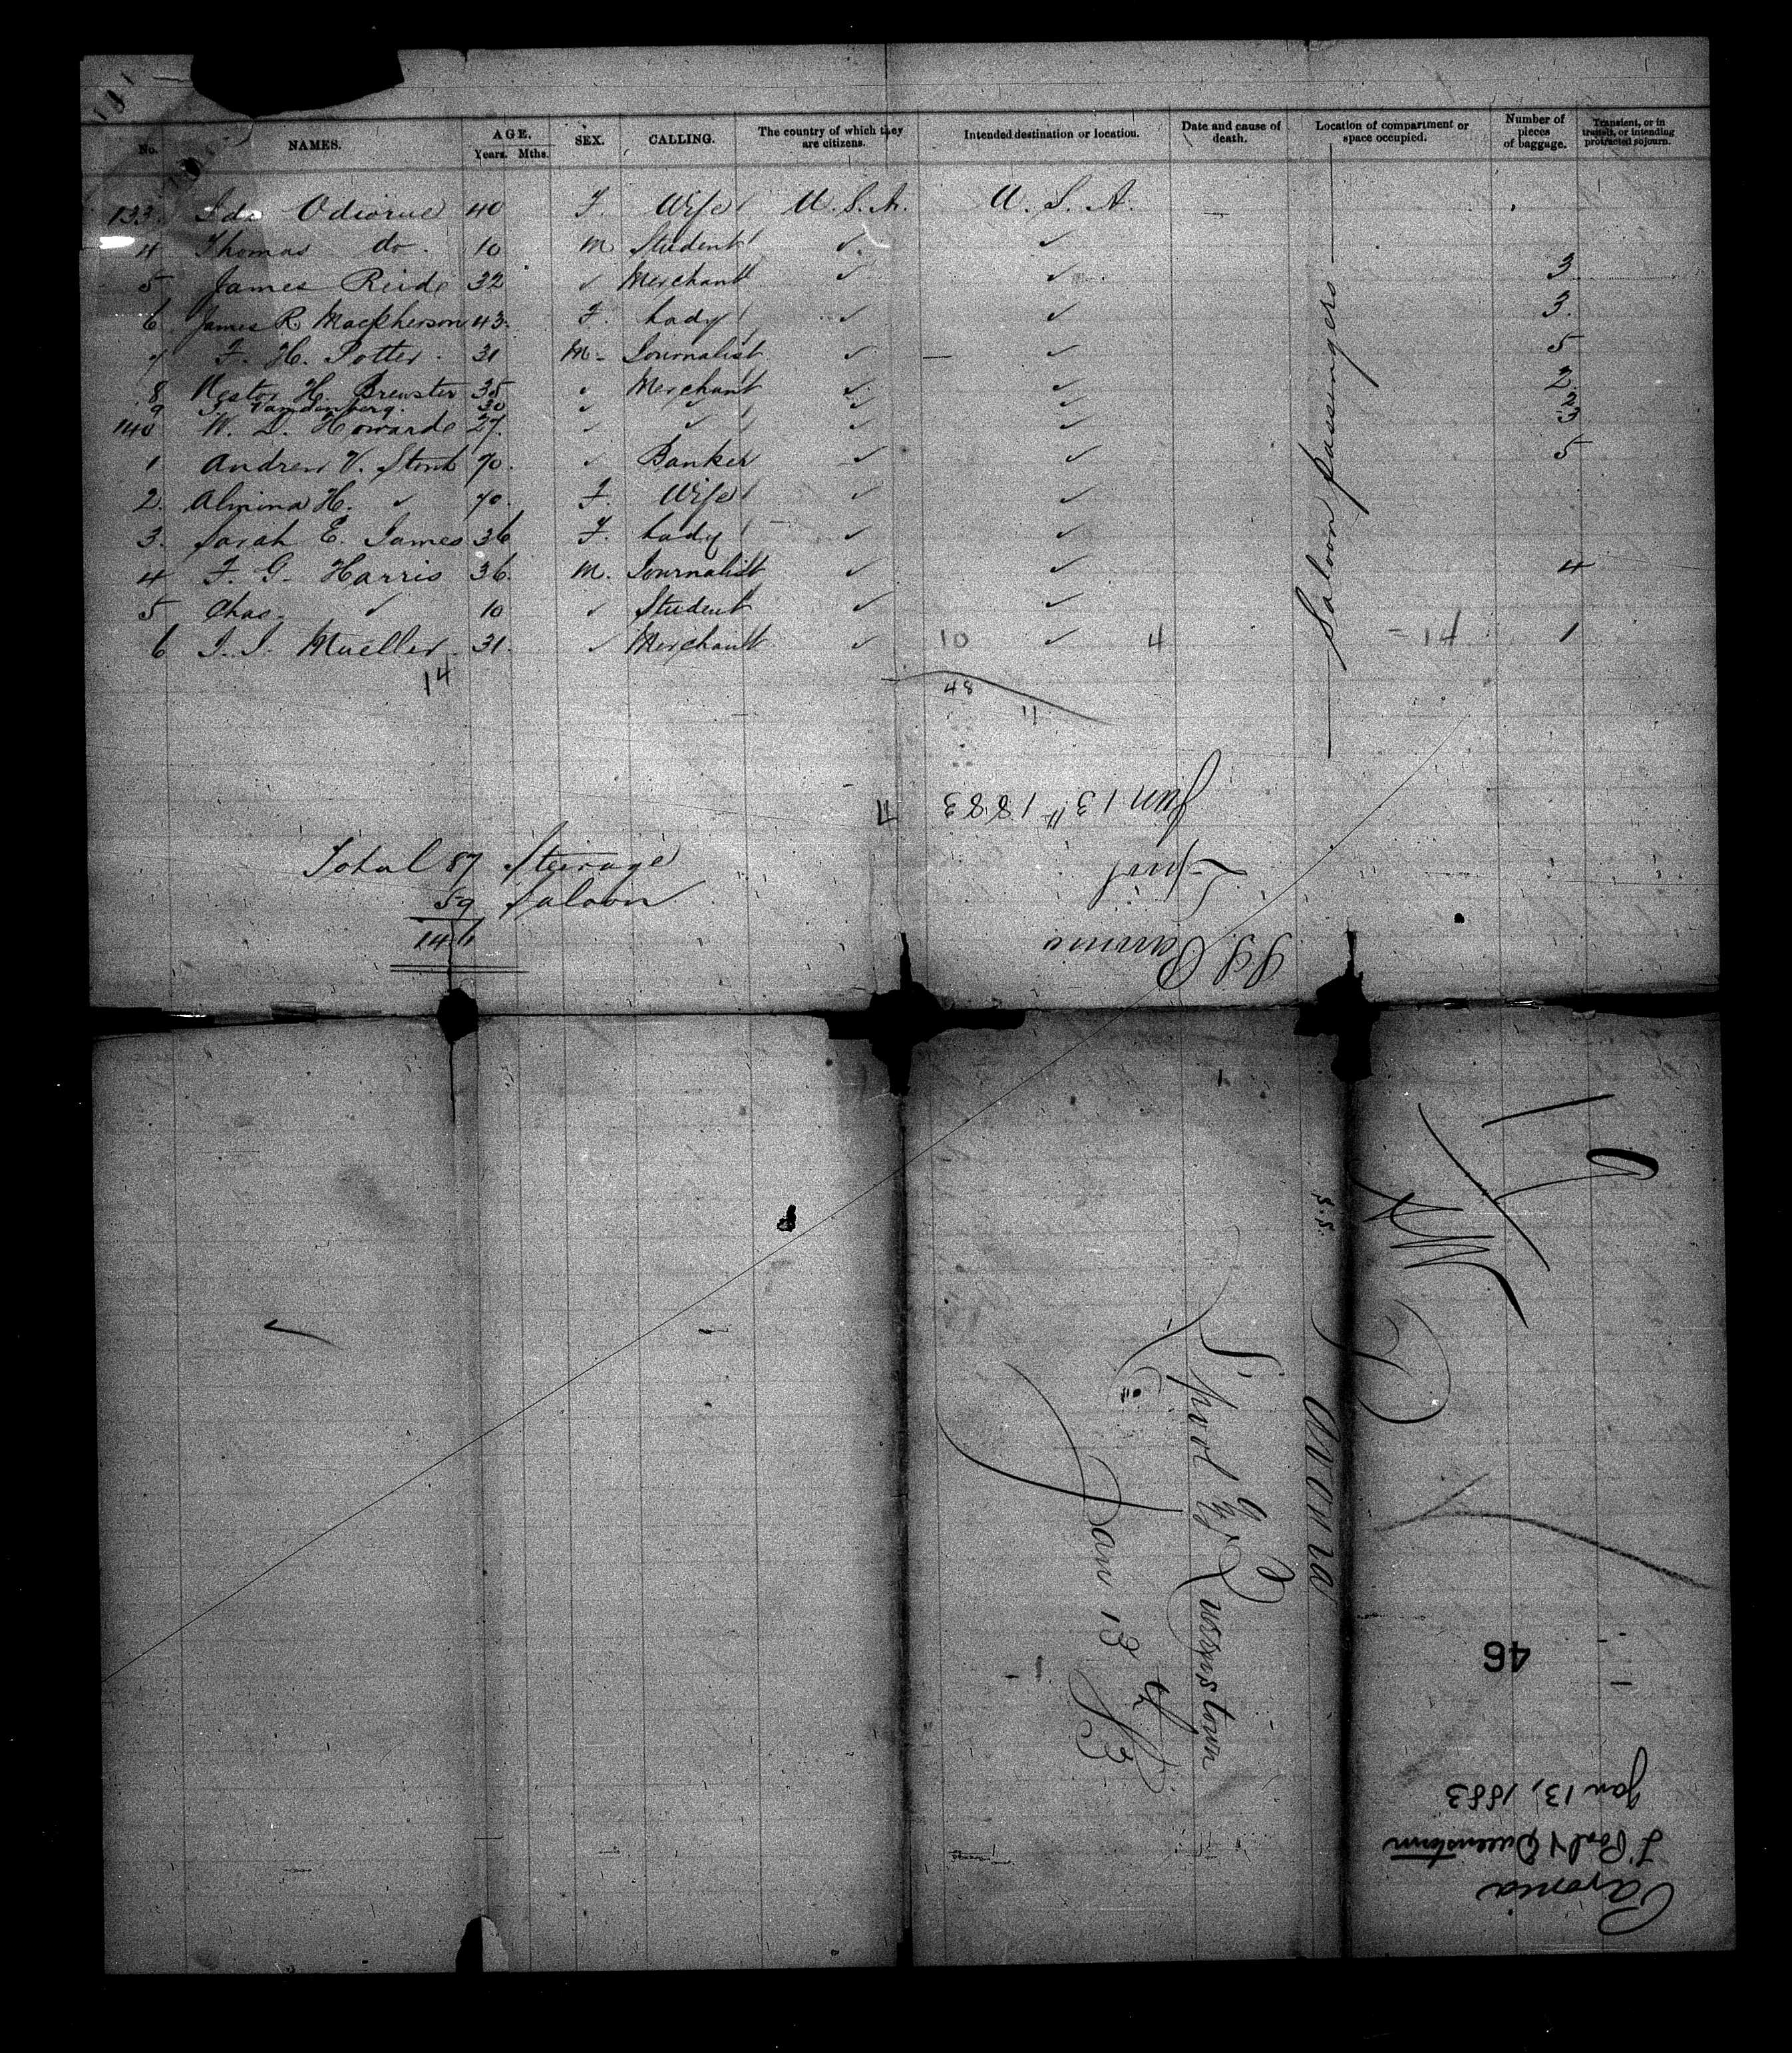 No. NAMES. AGE. Years. Mths. SEX. CALLING. The country of which they are citizens. Intended destination or location. Date and cause of death. Location of compartment or space occupied. Number of pieces of baggage. Transient, or in transit, or intending protracted sojourn.
133. Ida Odiorne 40 F. Wife U.S.A. U.S.A. —
4 Thomas do. 10 M. Student ✓ ✓
5 James Reide 32 ✓ Merchant ✓ ✓ 3
6 James R. Macpherson 43. F. Lady ✓ ✓ 3.
7 F. H. Potter. 31 M- Journalist ✓ ✓ 5
8 H. Brewster 35 ✓ Merchant ✓ ✓ 2.
9 Vandenberg. 30 ✓ ✓ ✓ ✓ 2
140 W. D. Howarde 27. ✓ ✓ ✓ ✓ 3
1 Andrew V. 70. ✓ Banker ✓ ✓ 5
2. Almina H. ✓ 70. F. Wife ✓ ✓
3. Sarah E. James 36 F. Lady ✓ ✓
4 F. G. Harris 36. M. Journalist ✓ ✓ 4
5 Chas. ✓ 10 ✓ Student ✓ ✓
6 J. J. Mueller. 31. ✓ Merchant ✓ 10 ✓ 4 -14 1
Saloon passengers
14
48
11
Total 87 Steerage
59 Saloon
146
Jan 13th 1883
L'pool
S.S.
S.S. Pavonia
L'pool & Queenstown
Jan 13th 83
46
Pavonia
L'Pool & Queenstown
Jan 13, 1883